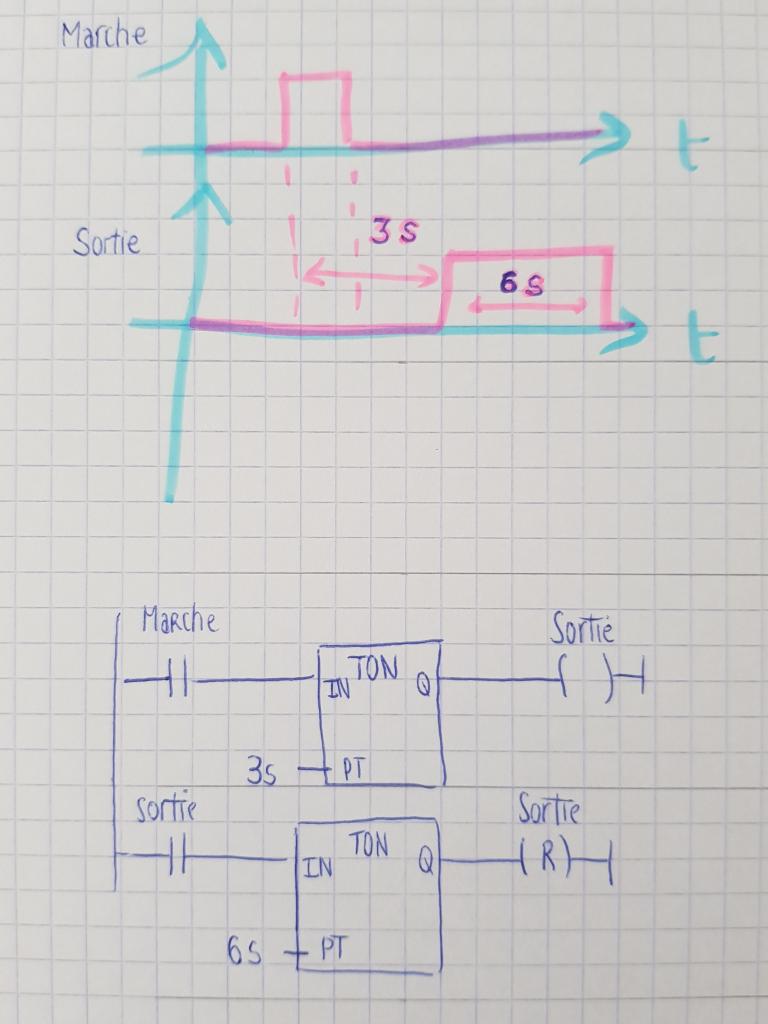 Marche
t
Sortie
3s
6s
t
Marche
Sortie
TON
IN
Q
3s
PT
sortie
Sortie
TON
IN
Q
R
6s
PT